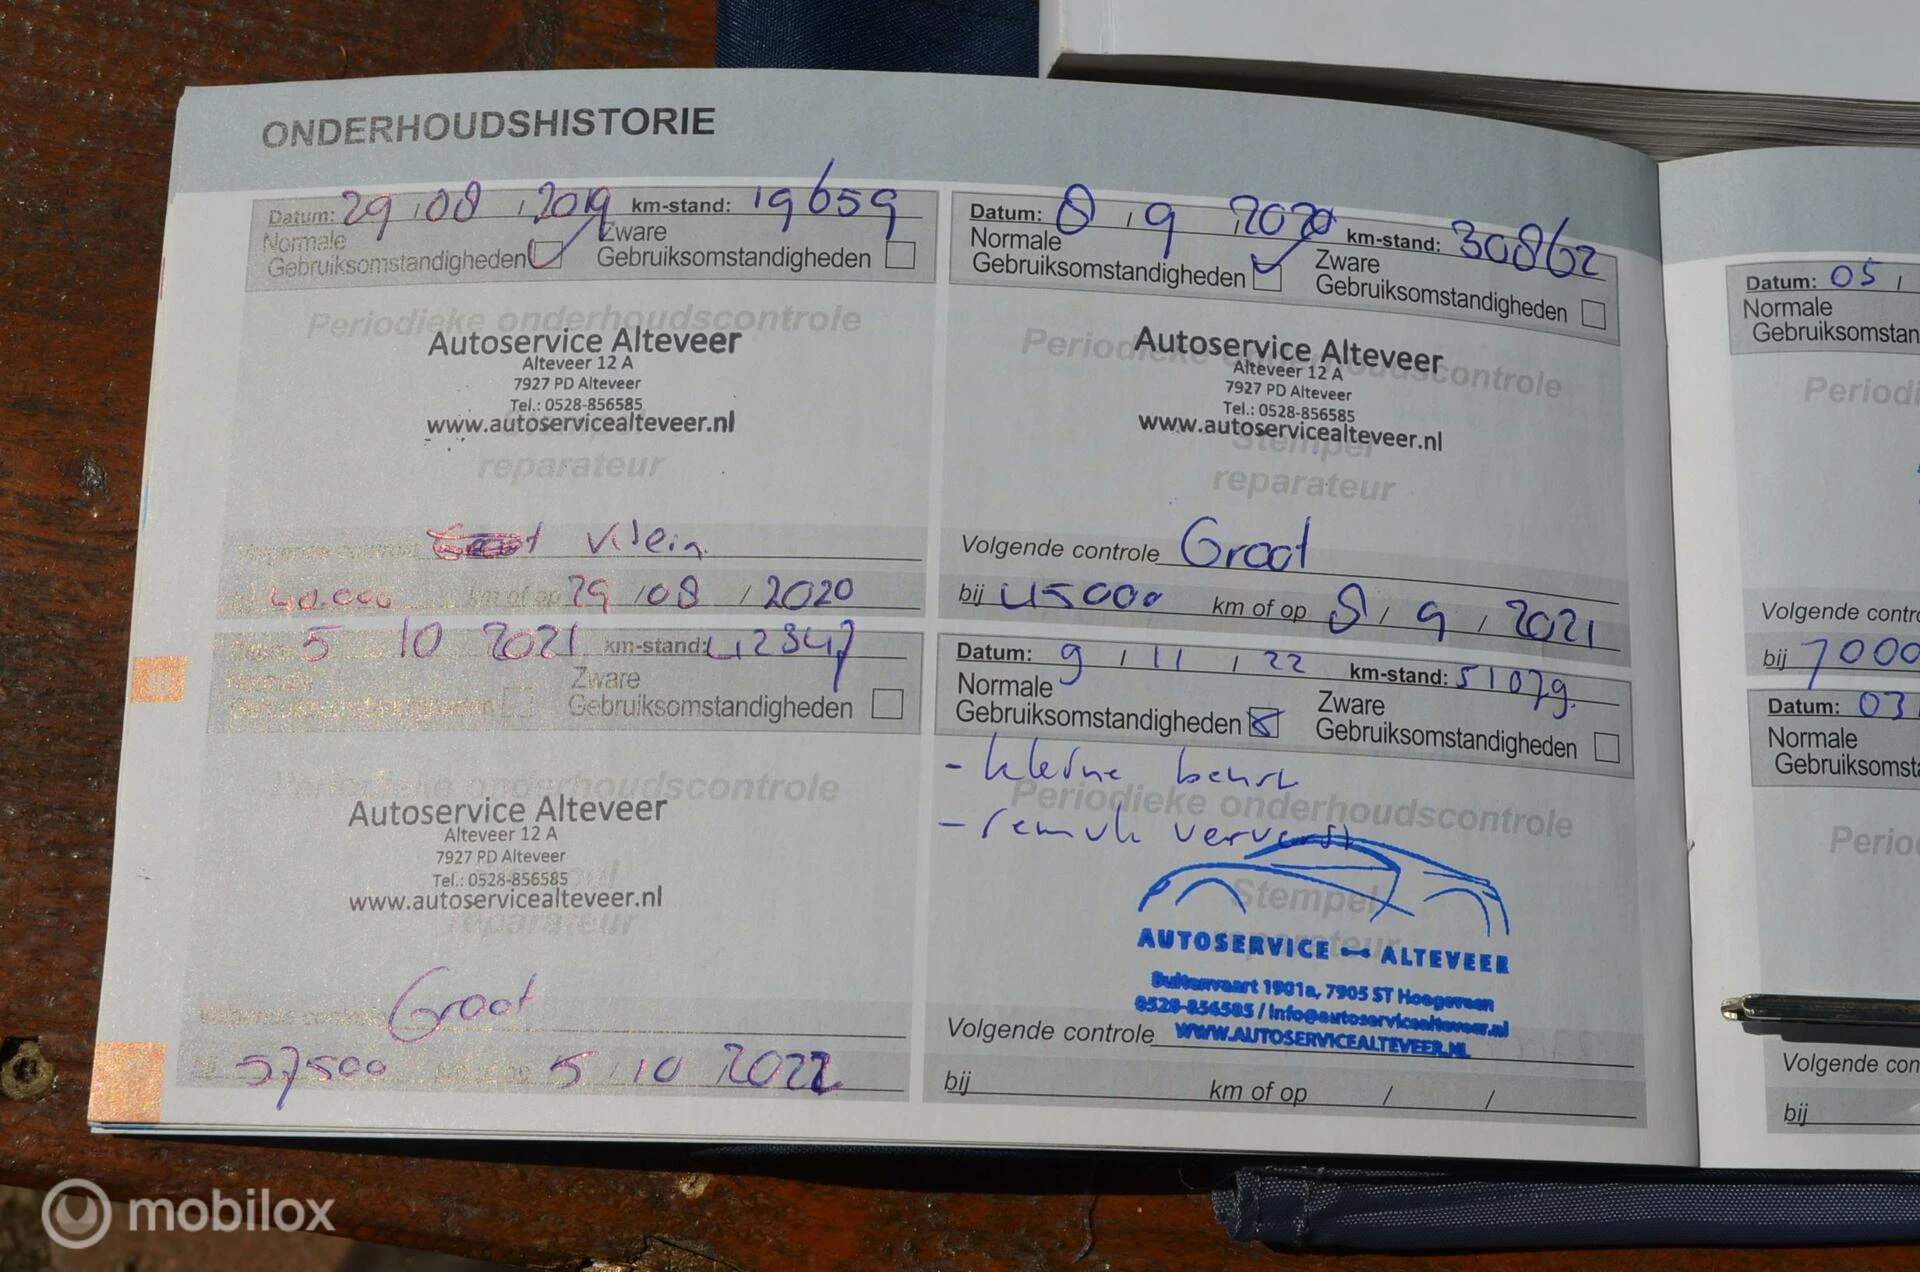 ONDERHOUDSHISTORIE
Datum: 29 / 08 / 2019 km-stand: 19659
Normale
Gebruiksomstandigheden
Zware
Gebruiksomstandigheden
Periodieke onderhoudscontrole
Autoservice Alteveer
Alteveer 12 A
7927 PD Alteveer
Tel.: 0528-856585
www.autoservicealteveer.nl
Stempel
reparateur
Volgende controle klein
40.000 km of op 29 / 08 / 2020
Datum: 8 / 9 / 2020 km-stand: 30862
Normale
Gebruiksomstandigheden
Zware
Gebruiksomstandigheden
Periodieke onderhoudscontrole
Autoservice Alteveer
Alteveer 12 A
7927 PD Alteveer
Tel.: 0528-856585
www.autoservicealteveer.nl
Stempel
reparateur
Volgende controle Groot
bij 45000 km of op 8 / 9 / 2021
5 10 2021 km-stand: 42347
Zware
Gebruiksomstandigheden
Gebruiksomstandigheden
Periodieke onderhoudscontrole
Autoservice Alteveer
Alteveer 12 A
7927 PD Alteveer
Tel.: 0528-856585
www.autoservicealteveer.nl
reparateur
Volgende controle Groot
57500 km of op 5 / 10 2022
Datum: 9 / 11 / 22 km-stand: 51079
Normale
Gebruiksomstandigheden
Zware
Gebruiksomstandigheden
- kleine beurt
- remvls ververst
Periodieke onderhoudscontrole
Stempel
reparateur
AUTOSERVICE ALTEVEER
Buitenvaart 1901a, 7905 ST Hoogeveen
0528-856585 / info@autoservicealteveer.nl
WWW.AUTOSERVICEALTEVEER.NL
Volgende controle
bij km of op / /
Datum: 05 /
Normale
Gebruiksomstan
Periodi
Volgende contro
bij 7000
Datum: 03
Normale
Gebruiksomsta
Perio
Volgende con
bij
mobilox